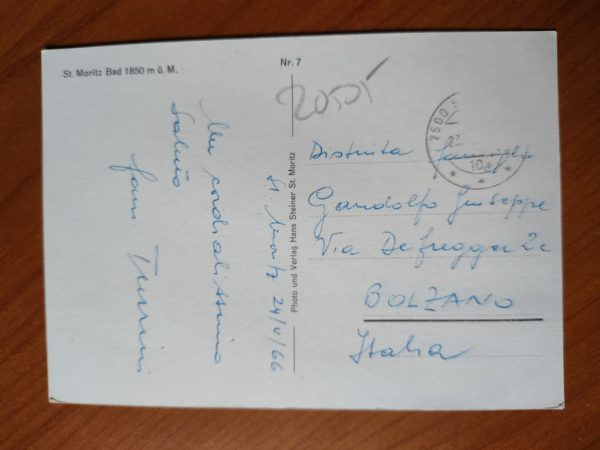 St. Moritz Bad 1850 m ü. M.
Nr. 7
2050
Un cordialissimo
Saluto
fam
St. Moritz 24/V/66
Photo und Verlag Hans Steiner St. Moritz
7500
10
Distinta Famiglia
Gandolfo Giuseppe
Via Defregger 2c
BOLZANO
Italia